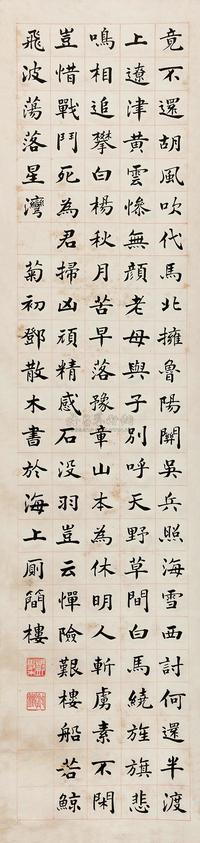 竟不還胡風吹代馬北擁魯陽關吳兵照海雪西討何還半渡
上遼津黃雲慘無顏老母與子別呼天野草間白馬繞旌旗悲
鳴相追攀白楊秋月苦早落豫章山本為休明人斬虜素不閑
豈惜戰鬥死為君掃凶頑精感石没羽豈云憚險艱樓船若鯨
飛波蕩落星灣 菊初鄧散木書於海上厠簡樓